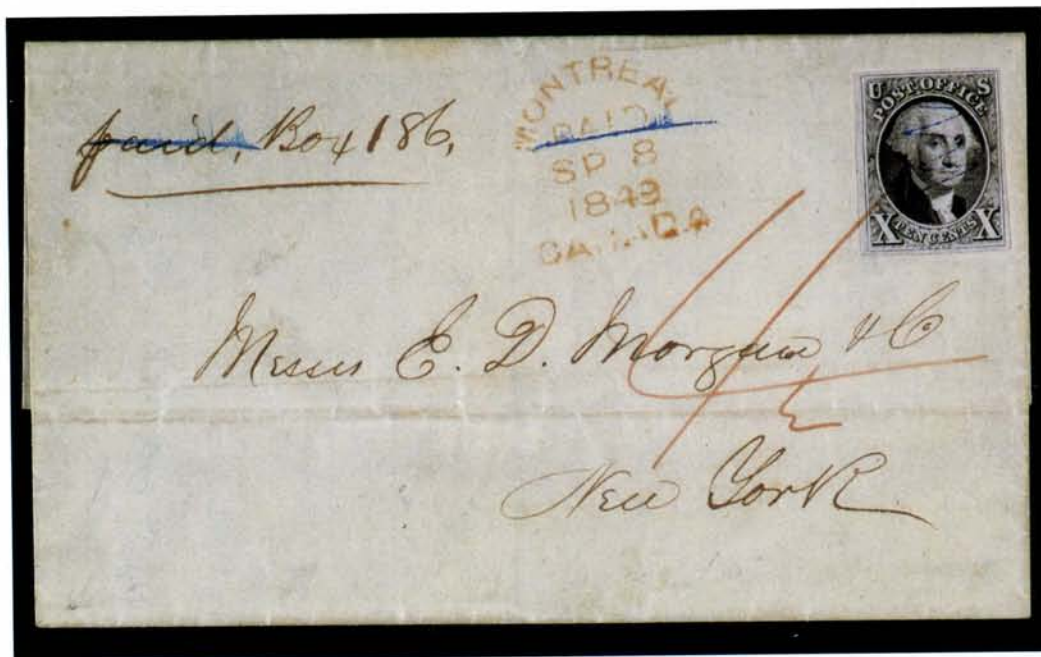 paid, Box 186,
MONTREAL
PAID
SP 8
1849
CANADA
U S
POST OFFICE
X TEN CENTS X
Messrs E. D. Morgan & C
New York